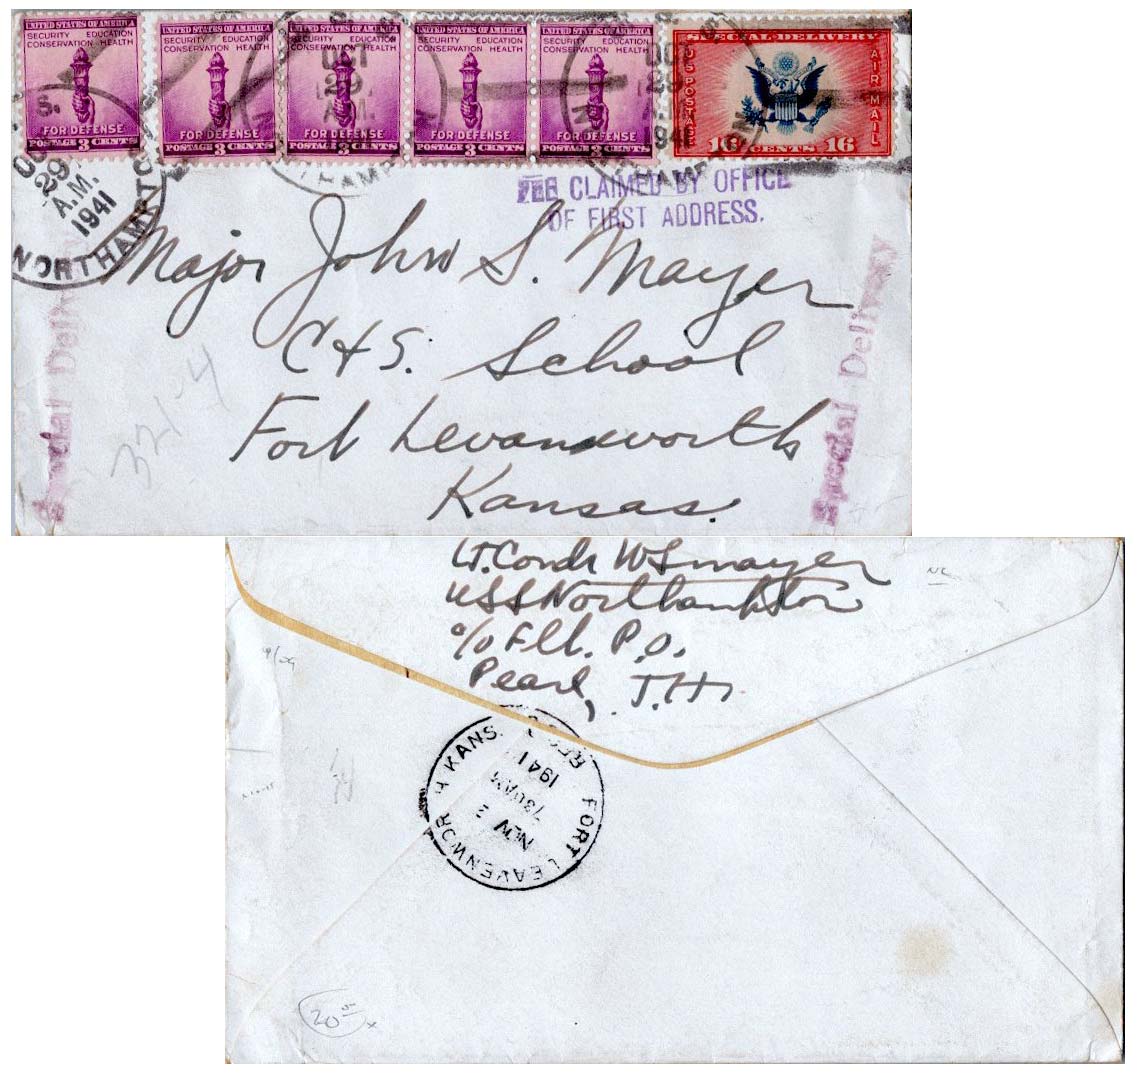 UNITED STATES OF AMERICA
SECURITY EDUCATION
CONSERVATION HEALTH
FOR DEFENSE
POSTAGE 3 CENTS
UNITED STATES OF AMERICA
SECURITY EDUCATION
CONSERVATION HEALTH
FOR DEFENSE
POSTAGE 3 CENTS
UNITED STATES OF AMERICA
SECURITY EDUCATION
CONSERVATION HEALTH
FOR DEFENSE
POSTAGE 3 CENTS
UNITED STATES OF AMERICA
SECURITY EDUCATION
CONSERVATION HEALTH
FOR DEFENSE
POSTAGE 3 CENTS
UNITED STATES OF AMERICA
SECURITY EDUCATION
CONSERVATION HEALTH
FOR DEFENSE
POSTAGE 3 CENTS
SPECIAL DELIVERY
U S POSTAGE
AIR MAIL
16 CENTS 16
29
A.M.
1941
NORTHAMPTO
OCT
29
A.M.
THAMP
OCT
29
1941
HAMPTON
FEE CLAIMED BY OFFICE
OF FIRST ADDRESS.
Major John S. Mayer
C & S. School
Fort Levansworth
Kansas.
Special Delivery
Special Delivery
3214
Lt. Comdr W S Mayer
USS Northampton
c/o Flt. P.O.
Pearl, T.H.
FORT LEAVENWOR KANS.
REC
NOV
730AM
1941
20